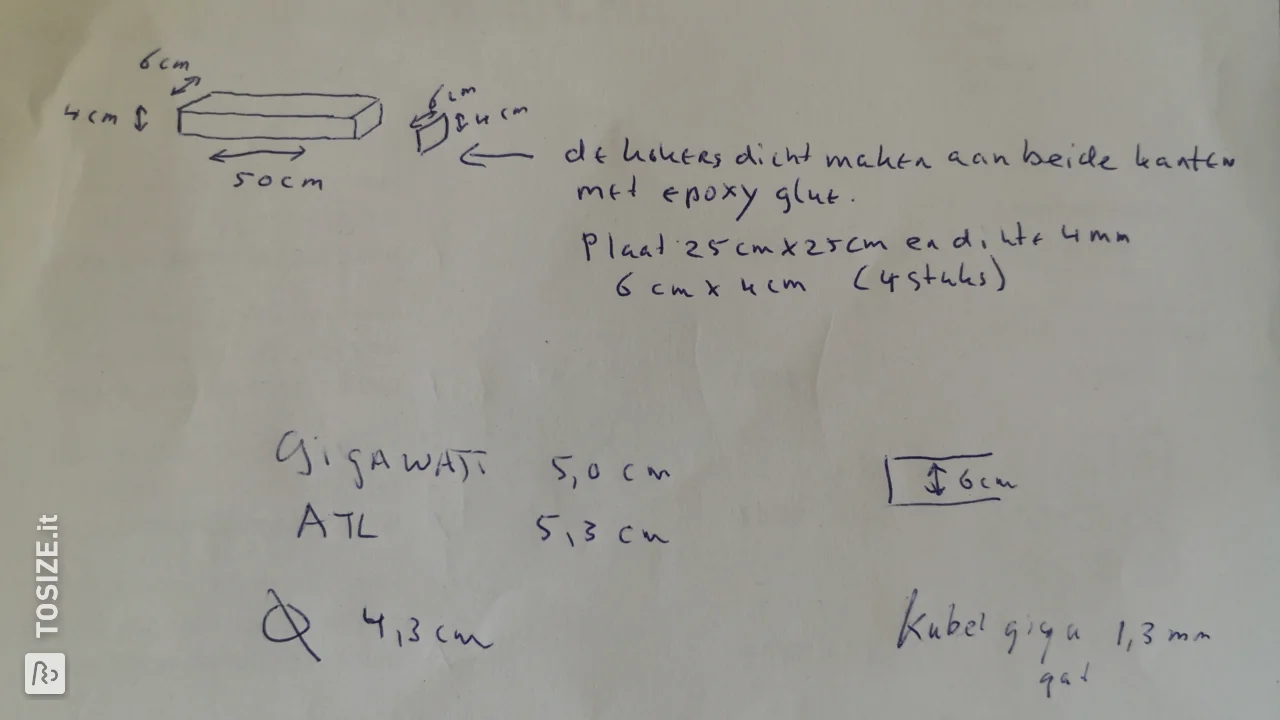 6cm
4cm
50cm
6cm
4cm
de kokers dicht maken aan beide kanten
met epoxy glue.
Plaat 25cm x 25cm en dikte 4mm
6 cm x 4cm (4 stuks)
GIGAWATT 5,0 cm
ATL 5,3 cm
6cm
Ø 4,3 cm
Kabel giga 1,3 mm
gat
TOSIZE.it